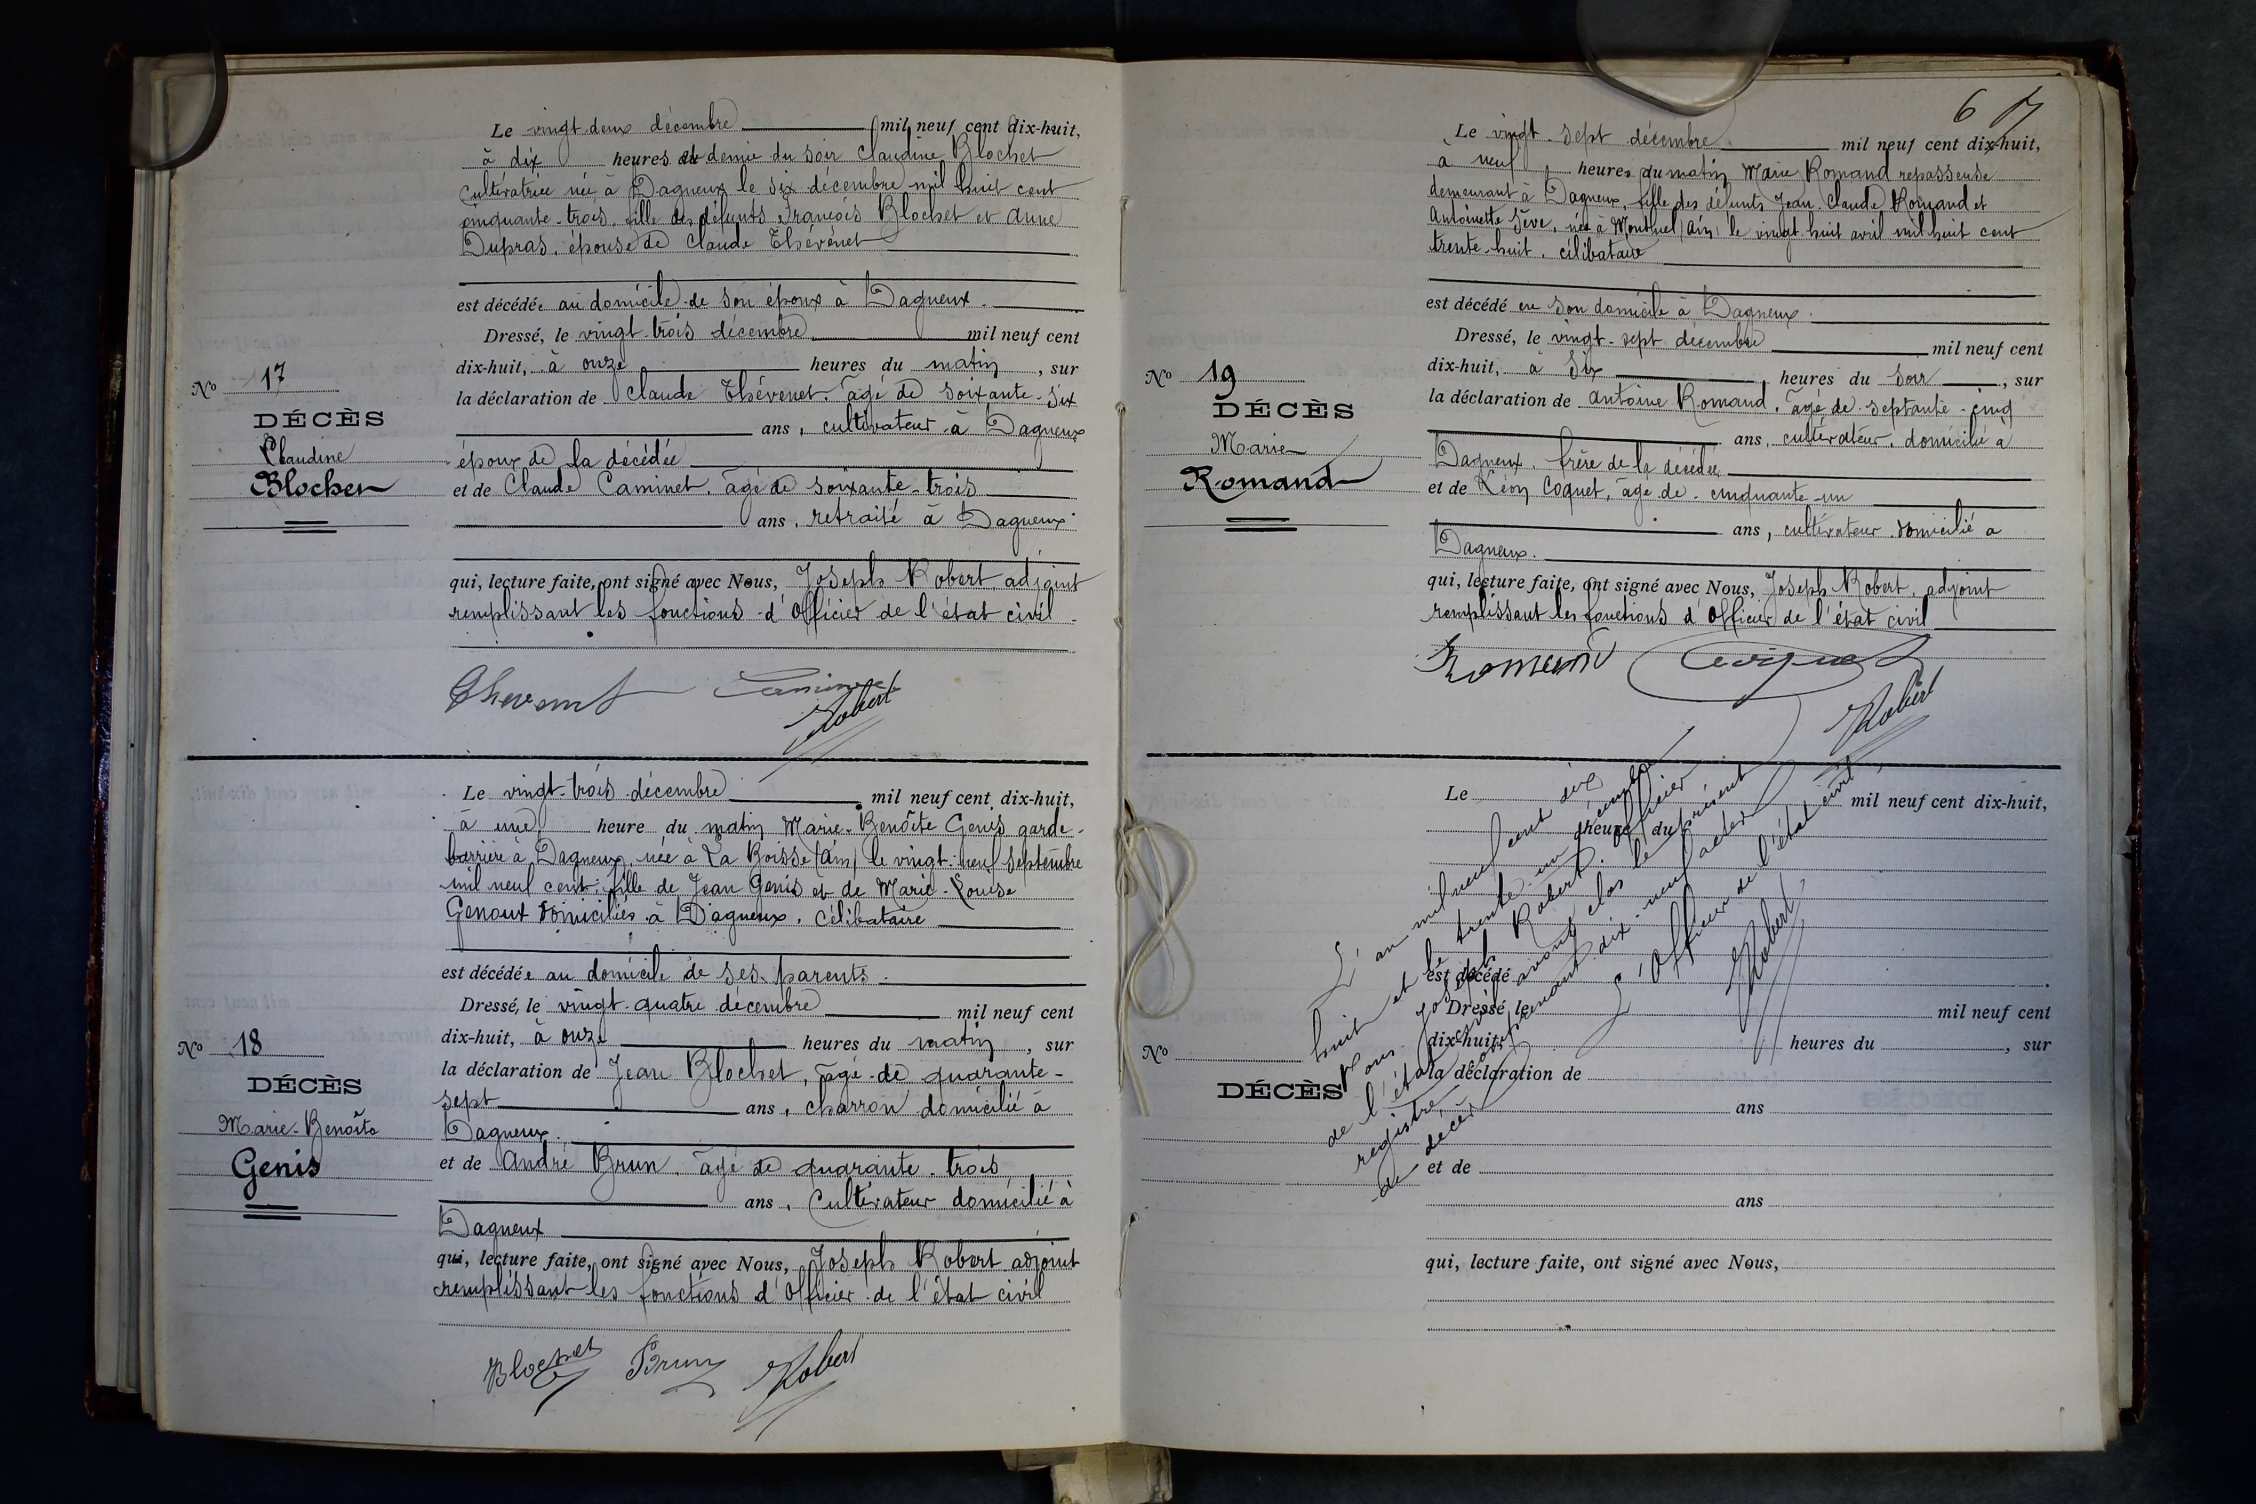 Le vingt deux décembre mil neuf cent dix-huit,
à dix heures et demie du soir Claudine Blochet
cultivatrice née à Dagneux le six décembre mil huit cent
cinquante-trois, fille des défunts François Blochet et Anne
Dupras, épouse de Claude Thévenet
est décédée au domicile de son époux à Dagneux.
Dressé, le vingt-trois décembre mil neuf cent
dix-huit, à onze heures du matin, sur
la déclaration de Claude Thévenet, âgé de soixante-six
ans, cultivateur à Dagneux
époux de la décédée
et de Claude Caminet, âgé de soixante-trois
ans, retraité à Dagneux
qui, lecture faite, ont signé avec Nous, Joseph Robert adjoint
remplissant les fonctions d'Officier de l'état civil.
No 17
DÉCÈS
Claudine
Blochet
Thevenet Caminet
Robert
Le vingt-trois décembre mil neuf cent dix-huit,
à une heure du matin Marie-Benoîte Genis garde-
barrière à Dagneux, née à La Boisse (Ain) le vingt-neuf septembre
mil neuf cent, fille de Jean Genis et de Marie-Louise
Genoux domiciliés à Dagneux, célibataire
est décédée au domicile de ses parents.
Dressé, le vingt-quatre décembre mil neuf cent
dix-huit, à onze heures du matin, sur
la déclaration de Jean Blochet, âgé de quarante-
sept ans, charron domicilié à
Dagneux.
et de André Brun, âgé de quarante-trois
ans, Cultivateur domicilié à
Dagneux
qui, lecture faite, ont signé avec Nous, Joseph Robert adjoint
remplissant les fonctions d'Officier de l'état civil
No 18
DÉCÈS
Marie-Benoîte
Genis
Blochet Brun Robert
6 17
Le vingt-sept décembre mil neuf cent dix-huit,
à neuf heures du matin Marie Romand repasseuse
demeurant à Dagneux, fille des défunts Jean-Claude Romand et
Antoinette Sève, née à Montluel (Ain) le vingt-huit avril mil huit cent
trente-huit, célibataire
est décédé en son domicile à Dagneux.
Dressé, le vingt-sept décembre mil neuf cent
dix-huit, à six heures du soir, sur
la déclaration de Antoine Romand, âgé de septante-cinq
ans, cultivateur, domicilié à
Dagneux, frère de la décédée
et de Léon Coquet, âgé de cinquante-un
ans, cultivateur domicilié à
Dagneux.
qui, lecture faite, ont signé avec Nous, Joseph Robert, adjoint
remplissant les fonctions d'Officier de l'état civil
No 19
DÉCÈS
Marie
Romand
Romand Coquet
Robert
Le mil neuf cent dix-huit,
heure du
est décédé
Dressé, le mil neuf cent
dix-huit, heures du , sur
la déclaration de
ans
et de
ans
qui, lecture faite, ont signé avec Nous,
No
DÉCÈS
L'an mil neuf cent dix
huit et le trente-un décembre
Nous Joseph Robert, officier
de l'état civil avons clos le présent
registre comprenant dix-neuf actes
de décès
L'Officier de l'état civil,
Robert